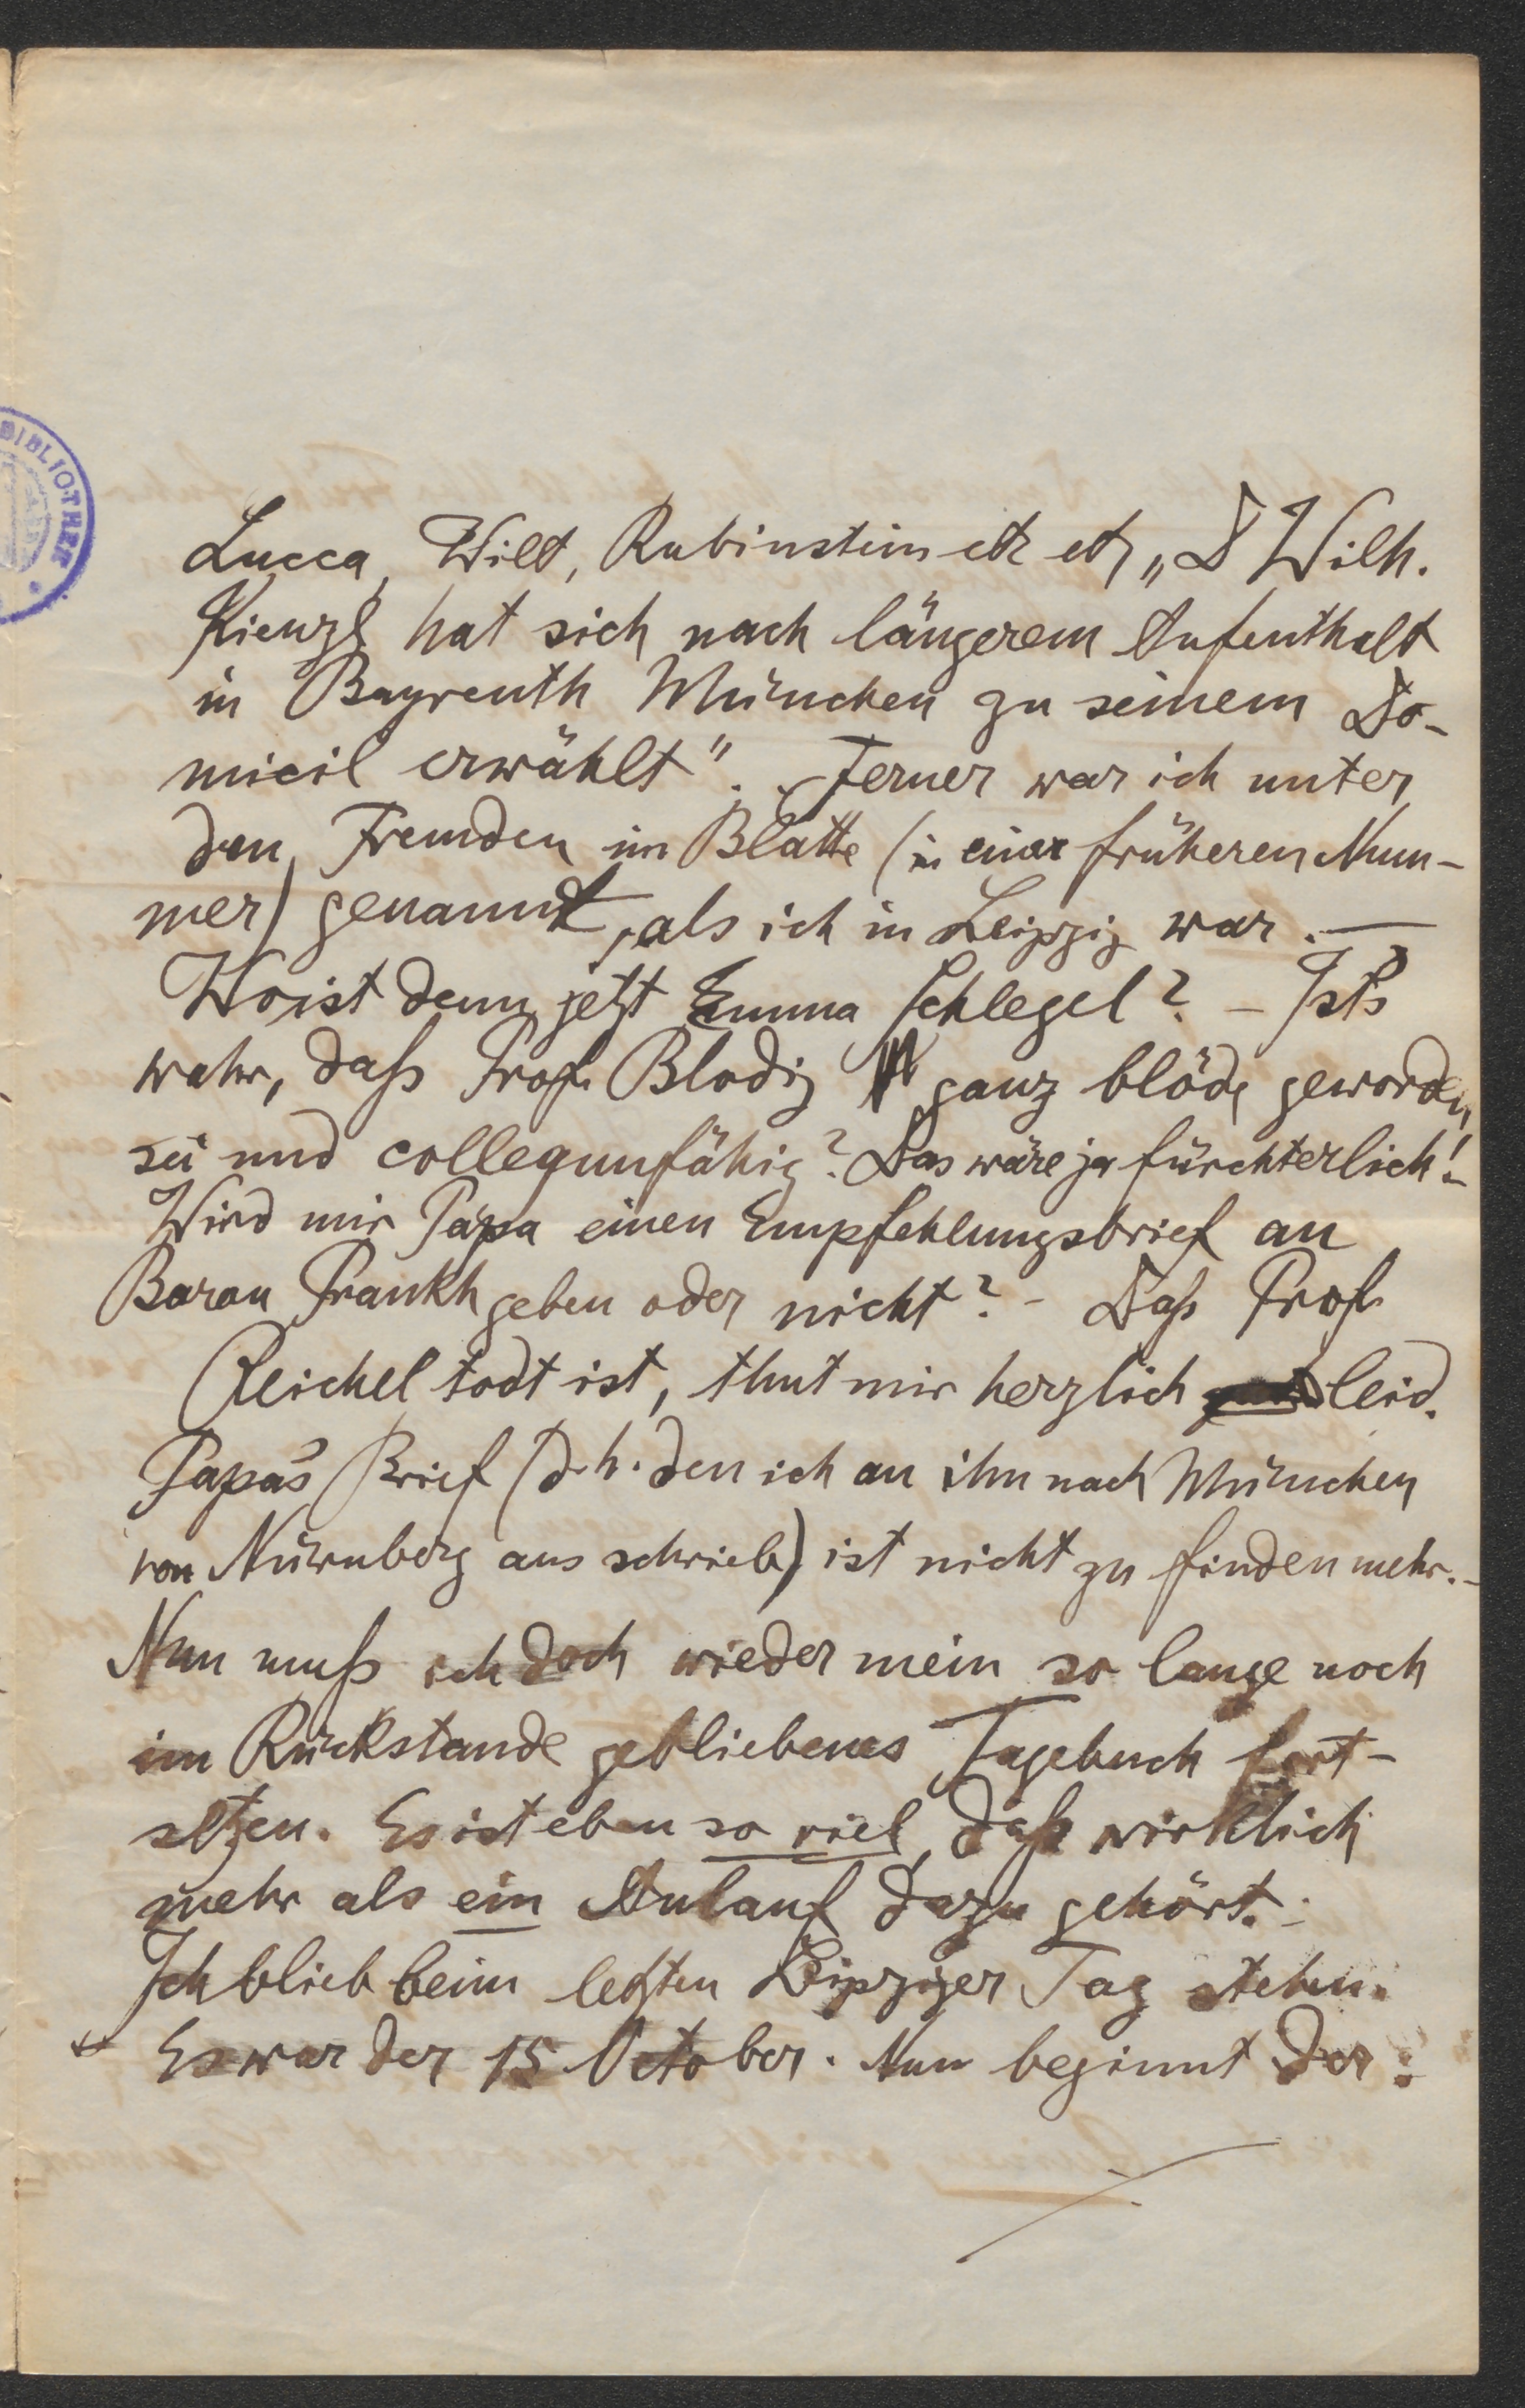 Lucca, Wilt, Rubinstein etc etc „D Wilh.
Kienzl hat sich nach längerem Aufenthalt
in Bayreuth München zu seinem Do-
micil erwählt". Ferner war ich unter
den Fremden im Blatte (in einer früheren Num-
mer) genannt, als ich in Leipzig war. —
Wo ist denn jetzt Emma Schlegel? – Ist's
wahr, daß Prof. Blodig ganz blöde geworden
sei und collegunfähig? Das wäre ja fürchterlich! –
Wird mir Papa einen Empfehlungsbrief an
Baron Frankh geben oder nicht? – Daß Prof.
Reichel todt ist, thut mir herzlich leid.
Papa's Brief (d. h. den ich an ihn nach München
von Nürnberg aus schrieb) ist nicht zu finden mehr. –
Nun muß ich doch wieder mein so lange noch
im Rückstande gebliebenes Tagebuch fort-
setzen. Es ist eben so viel, daß wirklich
mehr als ein Anlauf dazu gehört. –
Ich blieb beim letzten Leipziger Tag stehn.
Es war der 15 October. Nun beginnt der:
BIBLIOTHEK